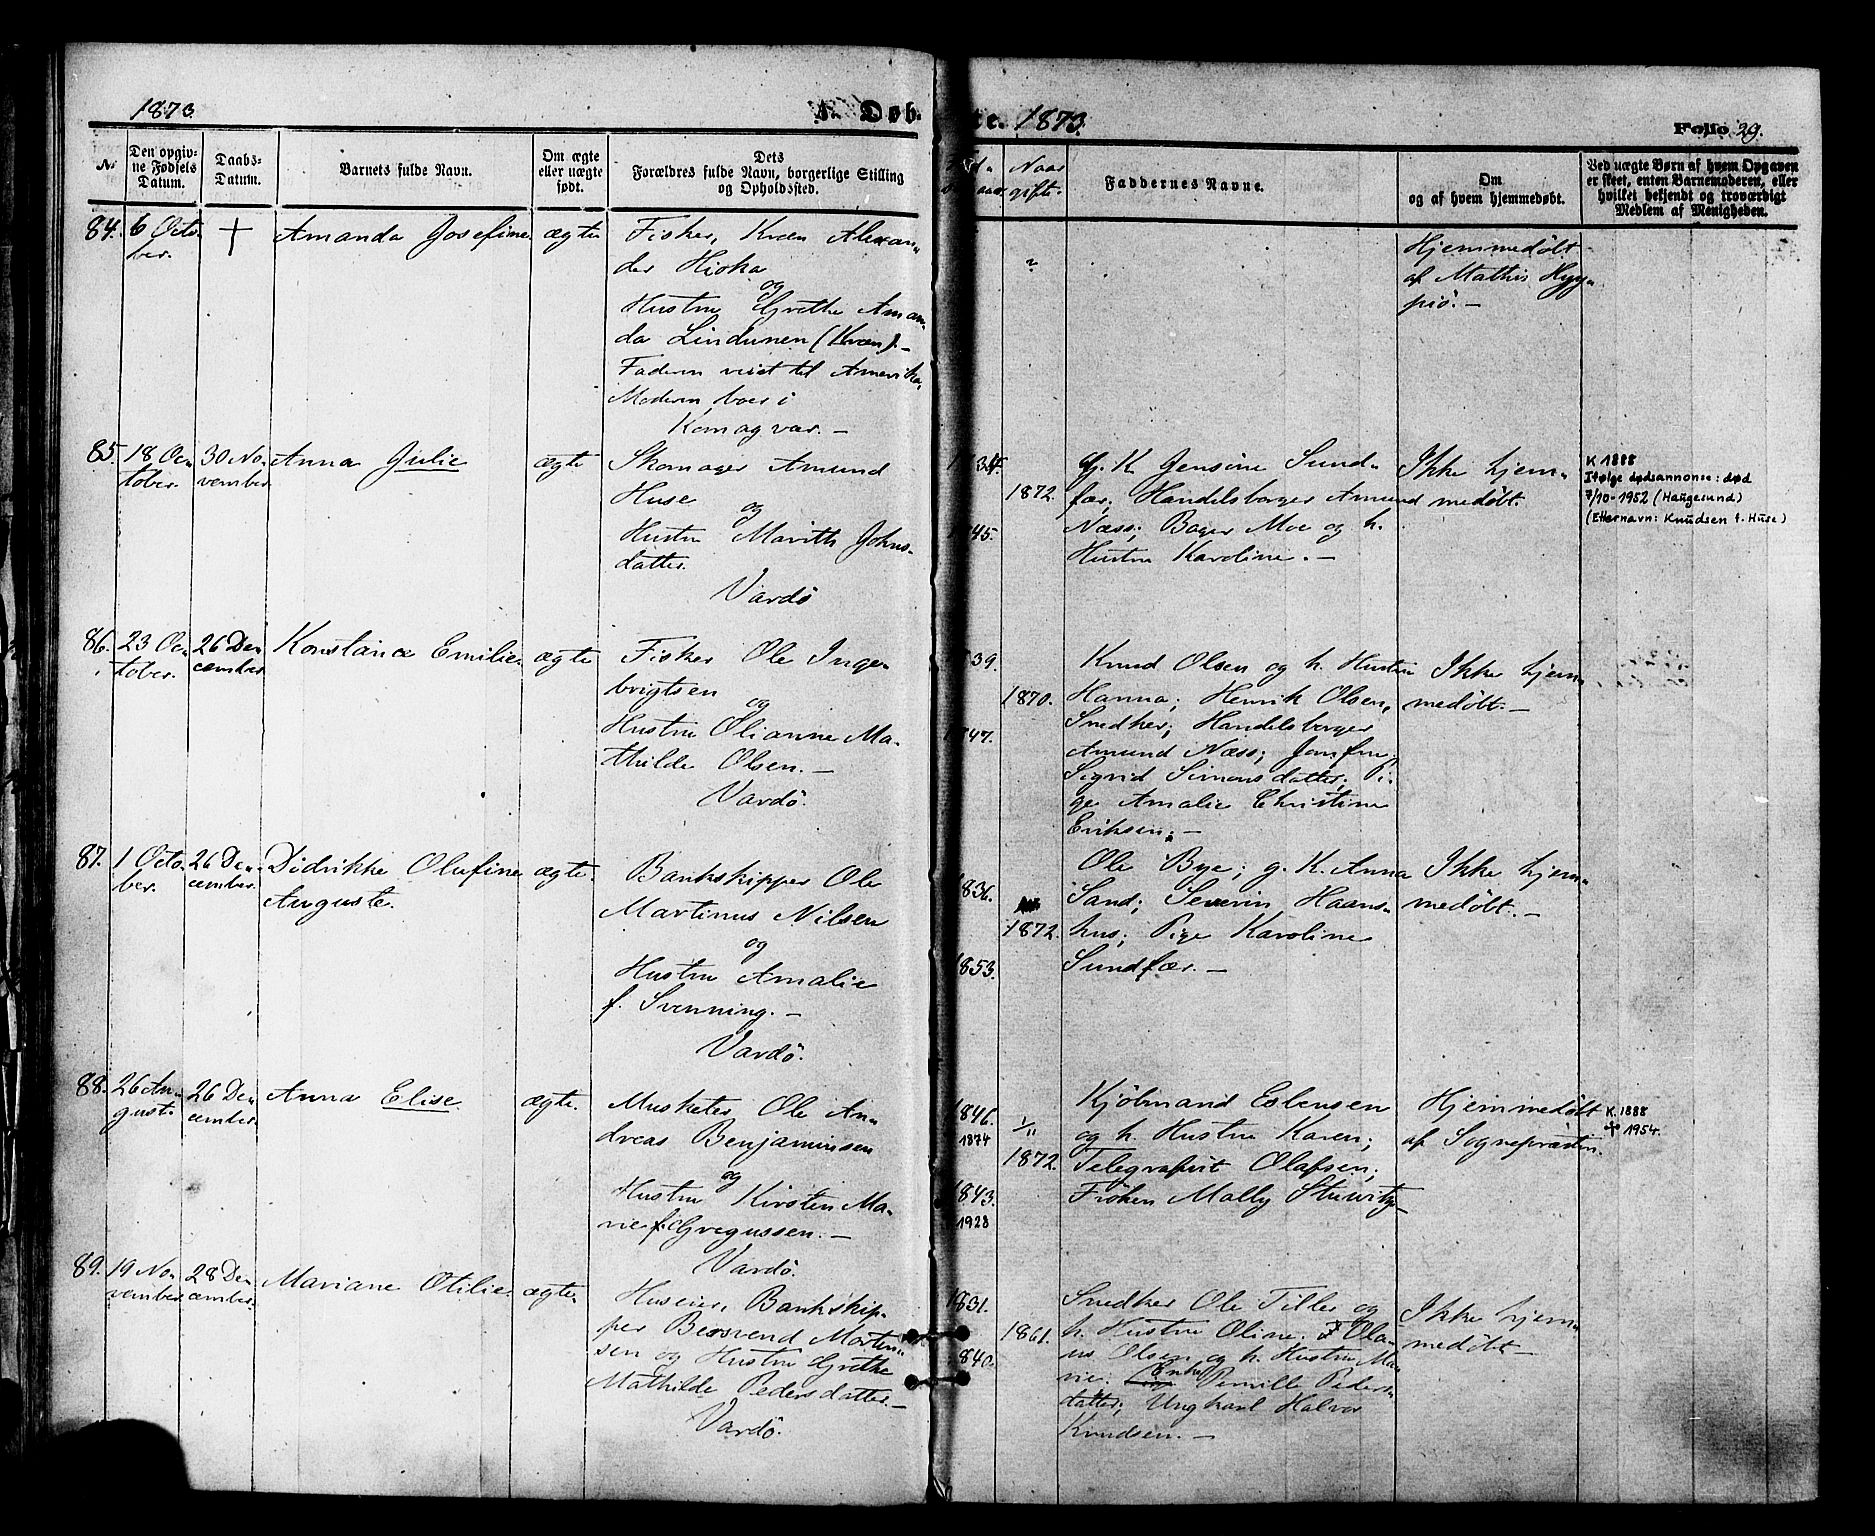 1873.
A. Døb-
te. 1873.
Folio 29.
№
Den opgiv-
ne Fødsels
Datum.
Daabs-
Datum.
Barnets fulde Navn.
Om ægte
eller uægte
født.
Dets
Forældres fulde Navn, borgerlige Stilling
og Opholdssted.
Naar
gifte.
Faddernes Navne.
Om
og af hvem hjemmedøbt.
Ved uægte Børn af hvem Opgaven
er skeet, enten Barnemoderen, eller
hvilket bekjendt og troværdigt
Medlem af Menigheden.
84. 6 Octo-
ber.
†
Amanda Josefine
ægte
Fisker, Kvæn Alexan-
der Hioka
og
Hustru Grethe Aman-
da Lindunen (Kvæn).-
Faderen reist til Amerika,
Moderen boer i
Komagvær.-
?
Hjemmedøbt
af Mathis Hyy-
piö.-
85. 18 Oc-
tober.
30 No-
vember.
Anna Julie
ægte
Skomager Amund
Huse
og
Hustru Marith Johns-
datter.
Vardö
1834.
1872.
1845.
g. K. Jensine Sund-
fær; Handelsborger Amund
Næss; Bager Moe og h.
Hustru Karoline.-
Ikke hjem-
medøbt.
K 1888
Ifølge dødsannonse: død
7/10-1952 (Haugesund)
(Etternavn: Knudsen f. Huse)
86. 23 Oc-
tober.
26 De-
cember.
Konstance Emilie
ægte
Fisker Ole Inge-
brigtsen
og
Hustru Olianne Ma-
thilde Olsen.-
Vardö.
1839.
1870.
1847.
Knud Olsen og h. Hustru
Hanna; Henrik Olsen,
Snedker; Handelsborger
Amund Næss; Jomfru
Sigrid Simonsdatter; Pi-
ge Amalie Christine
Eriksen.-
Ikke hjem-
medøbt.-
87. 1 Octo-
ber.
26 De-
cember.
Didrikke Olufine
Auguste.
ægte.
Bankskipper Ole
Martinus Nilsen
og
Hustru Amalie
f. Svenning.-
Vardö.
1836.
1872.
1853.
Ole Bye; g. K. Anna
Sand; Severin Haans-
hus; Pige Karoline
Sundfær.-
Ikke hjem-
medøbt.-
88. 26 Au-
gust.
26 De-
cember.
Anna Elise.
ægte.
Musketer Ole An-
dreas Benjaminsen
og
Hustru Kirsten Ma-
rie f. Gregussen.-
Vardö.
1846.
1874
1/11
1872.
1843.
1928
Kjöbmand Esbensen
og h. Hustru Karen;
Telegrafist Olafsen;
Fröken Mally Stuwitz-
Hjemmedøbt
af Sognepræsten.
K. 1888
✝ 1954.
89. 19 No-
vember.
28 De-
cember.
Mariane Otilie
ægte.
Huseier, Bankskip-
per Bersvend Morten-
sen og Hustru Grethe
Mathilde Pedersdatter.-
Vardö.
1831.
1861.
1840.
Snedker Ole Tiller og
h. Hustru Oline; Ola-
us Olsen og h. Hustru Ma-
rie; Enke Pernille Peders-
datter; Ungkarl Halvor
Knudsen.-
Ikke hjem-
medøbt.